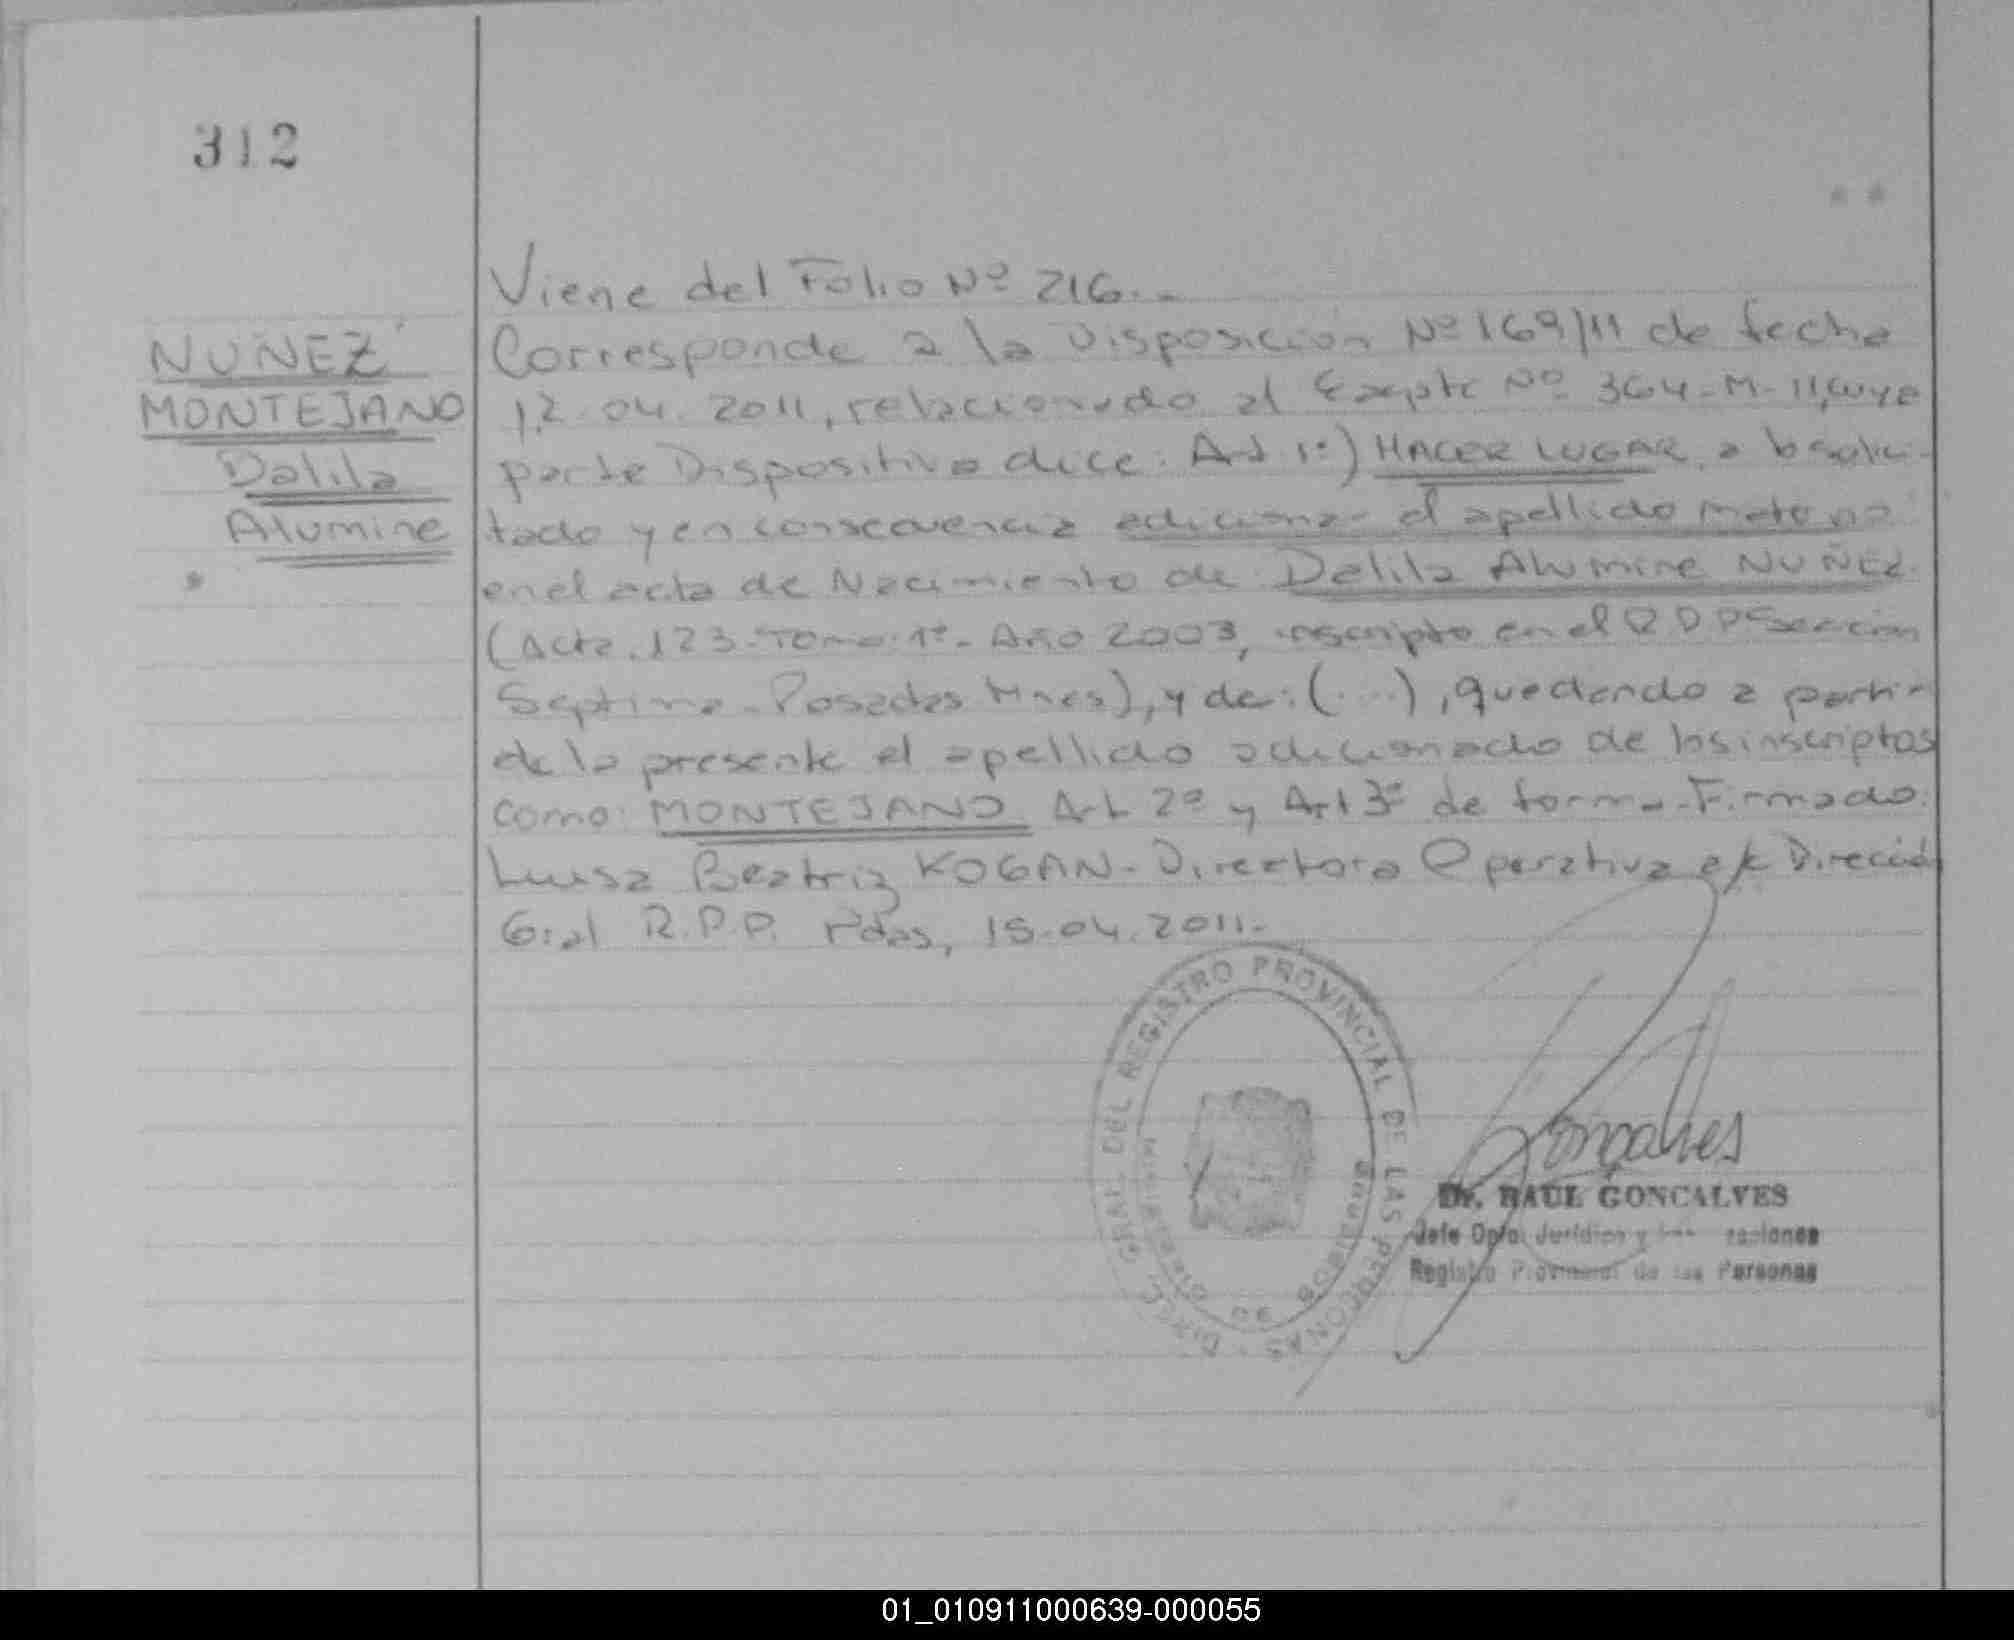 312
Viene del Folio Nº 216.-
NUÑEZ
MONTEJANO
Dalila
Alumine
Corresponde a la Disposición Nº 169/11 de fecha
12.04.2011, relacionado al Expte Nº 364-M-11, cuya
parte Dispositiva dice: Art 1º) HACER LUGAR a lo solici-
tado y en consecuencia adicionar el apellido materno
en el acta de Nacimiento de Dalila Alumine NUÑEZ
(Acta.123-Tomo:1º-Año 2003, inscripto en el R.P.P Sección
Septima-Posadas Mnes), y de: (...), quedando a partir
de la presente el apellido adicionado de los inscriptos
como: MONTEJANO Art 2º y Art 3º de forma-Firmado:
Luisa Beatriz KOGAN-Directora Operativa a/c Dirección
Gral R.P.P. Pdas, 15.04.2011.-
DIREC. GRAL. DEL REGISTRO PROVINCIAL DE LAS PERSONAS
Goncalves
Dr. RAUL GONCALVES
Jefe Dpto. Jurídico y
Registro Provincial de las Personas
01_010911000639-000055